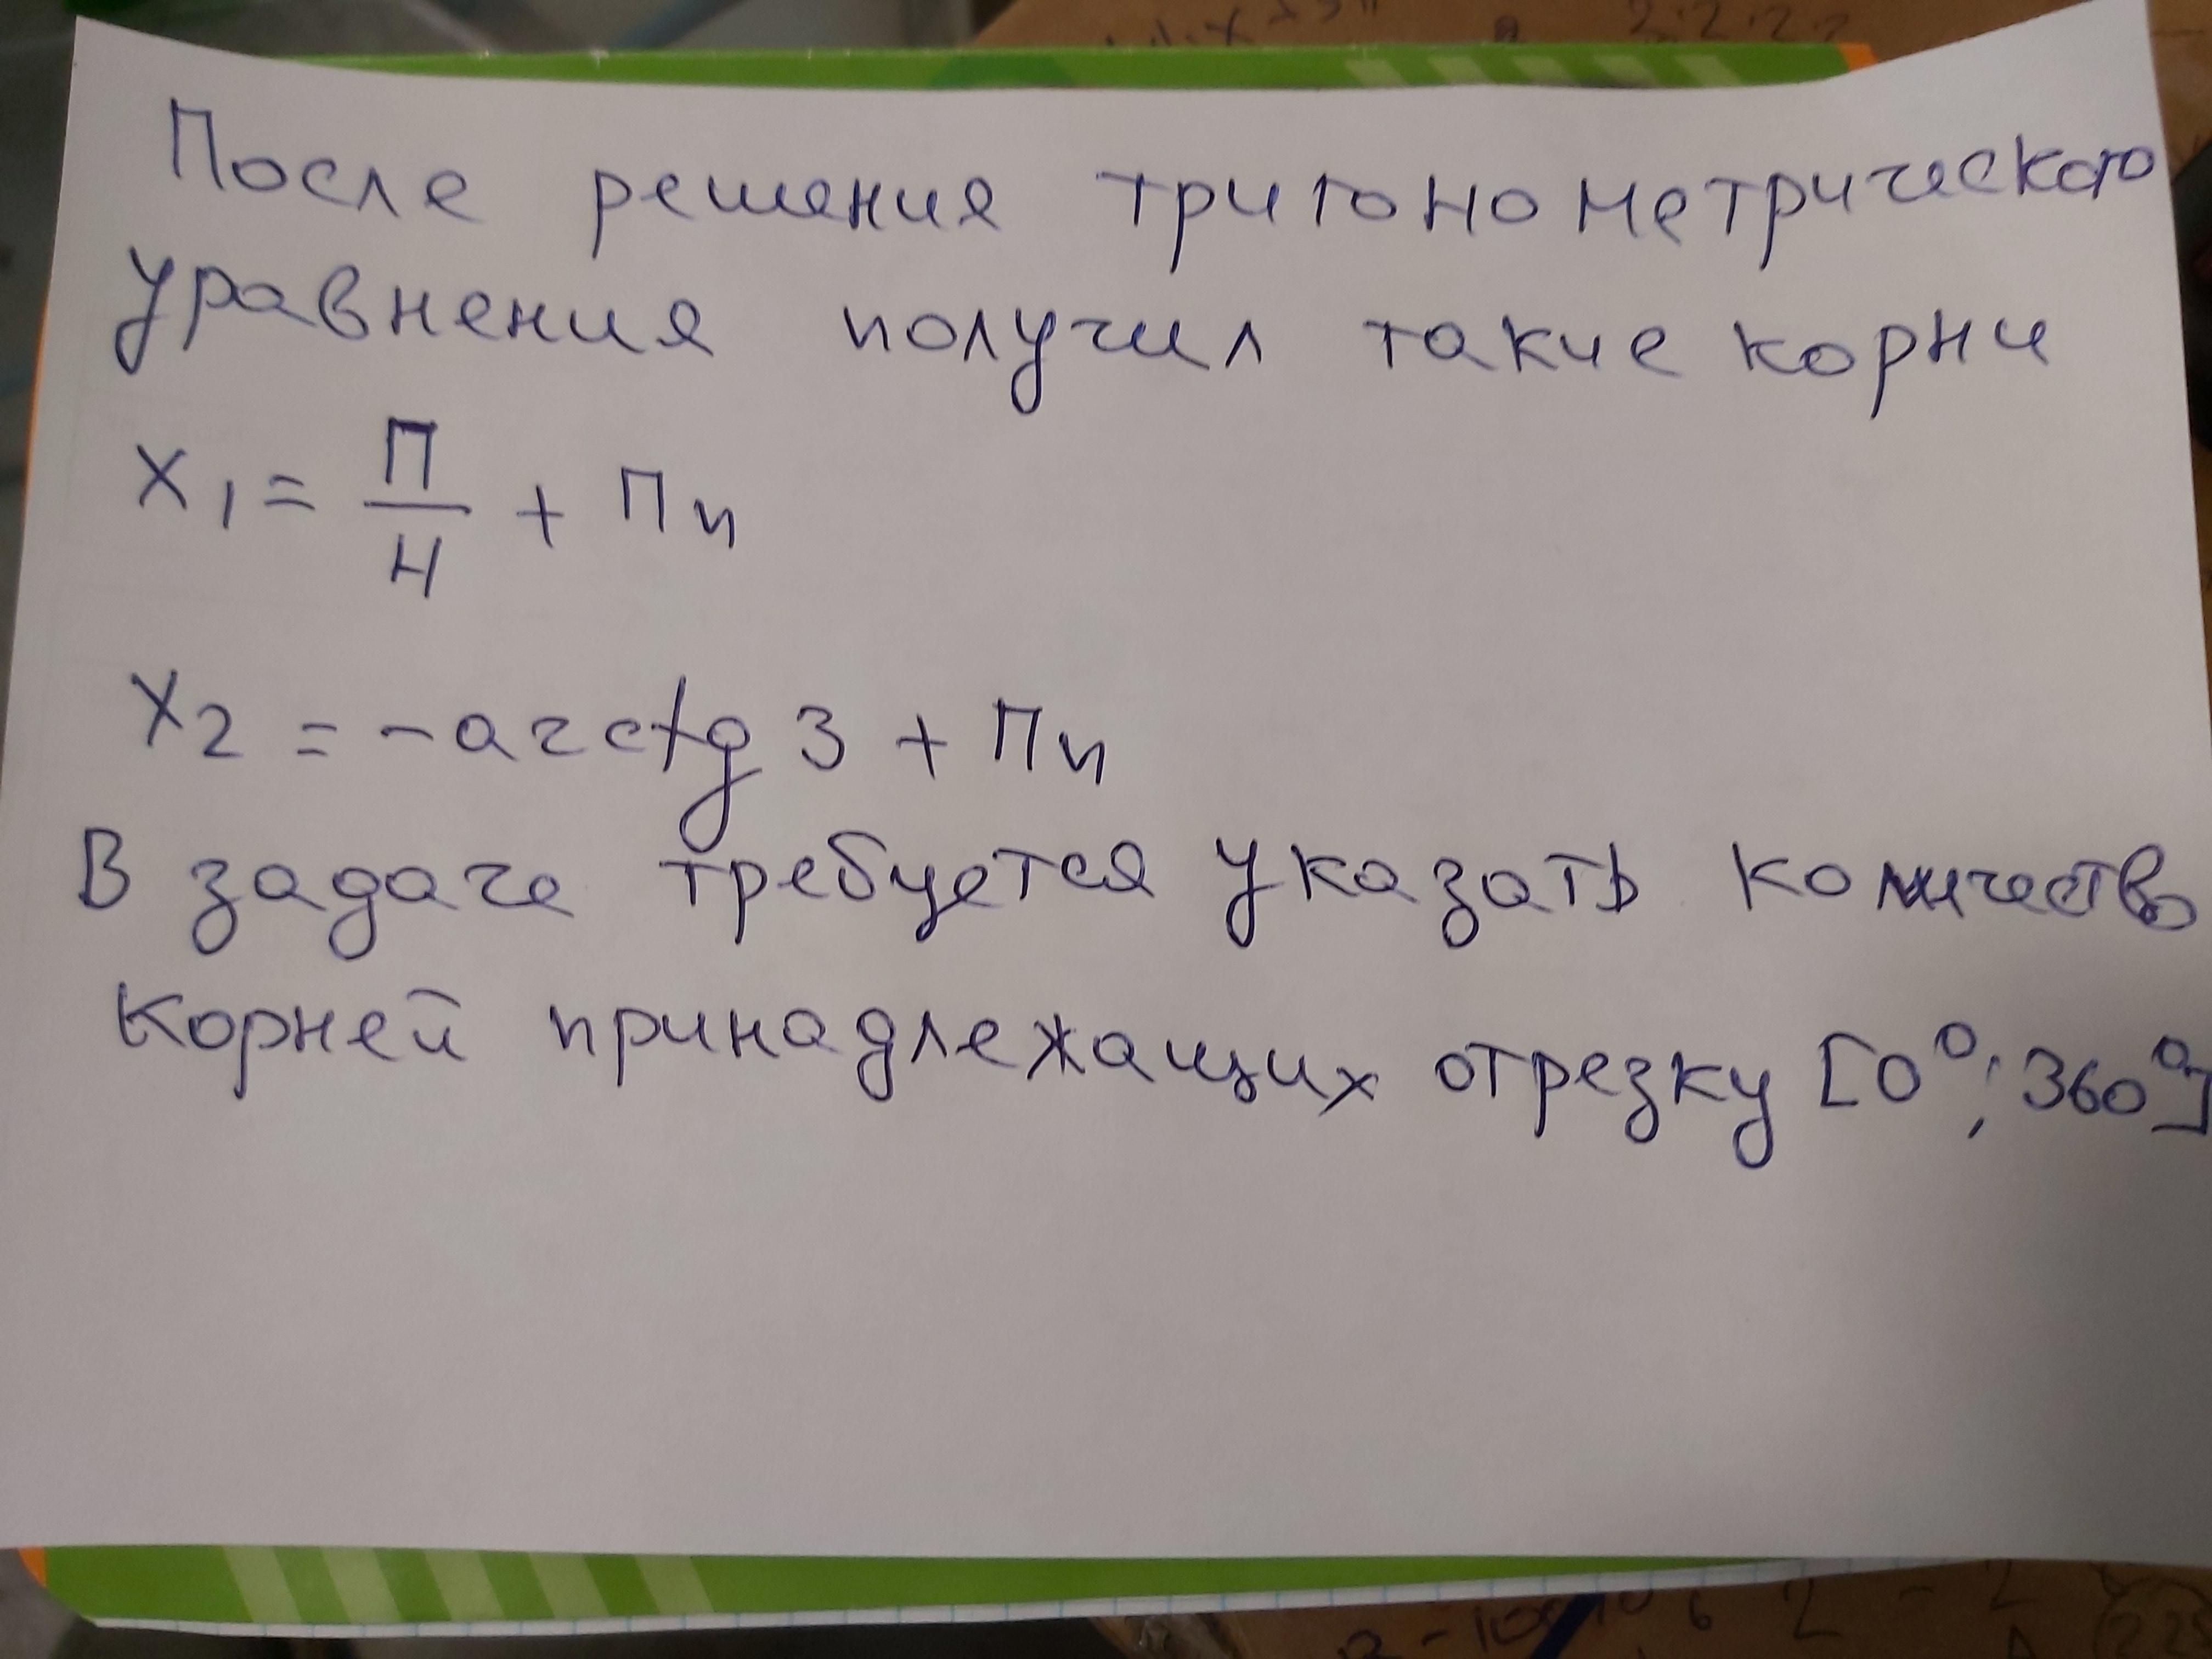 После решения тригонометрического
уравнения получил такие корни
x₁ = П/4 + Пn
x₂ = -arctg 3 + Пn
В задаче требуется указать количество
корней принадлежащих отрезку [0°; 360°]